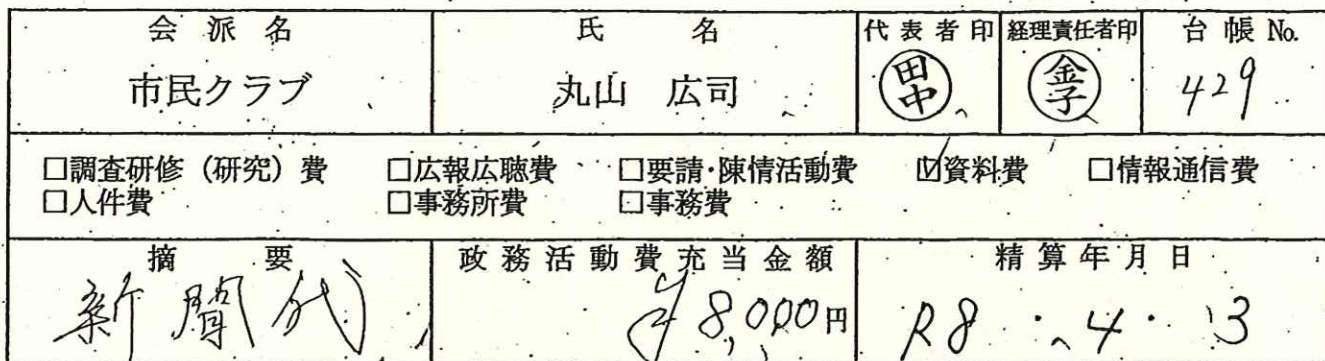 会派名 氏名 代表者印 経理責任者印 台帳No.
市民クラブ 丸山 広司 田中 金子 429
□調査研修（研究）費 □広報広聴費 □要請・陳情活動費 ☑資料費 □情報通信費
□人件費 □事務所費 □事務費
摘要 政務活動費充当金額 精算年月日
新聞代 ¥8,000円 R8・4・3